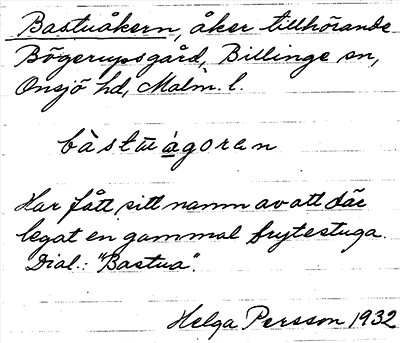 Bastuåkern, åker tillhörande
Bögerupsgård, Billinge sn,
Onsjö hd, Malm. l.
bàstuágoren
Har fått sitt namn av att där
legat en gammal brytestuga.
Dial.: "Bastua".
Helga Persson 1932